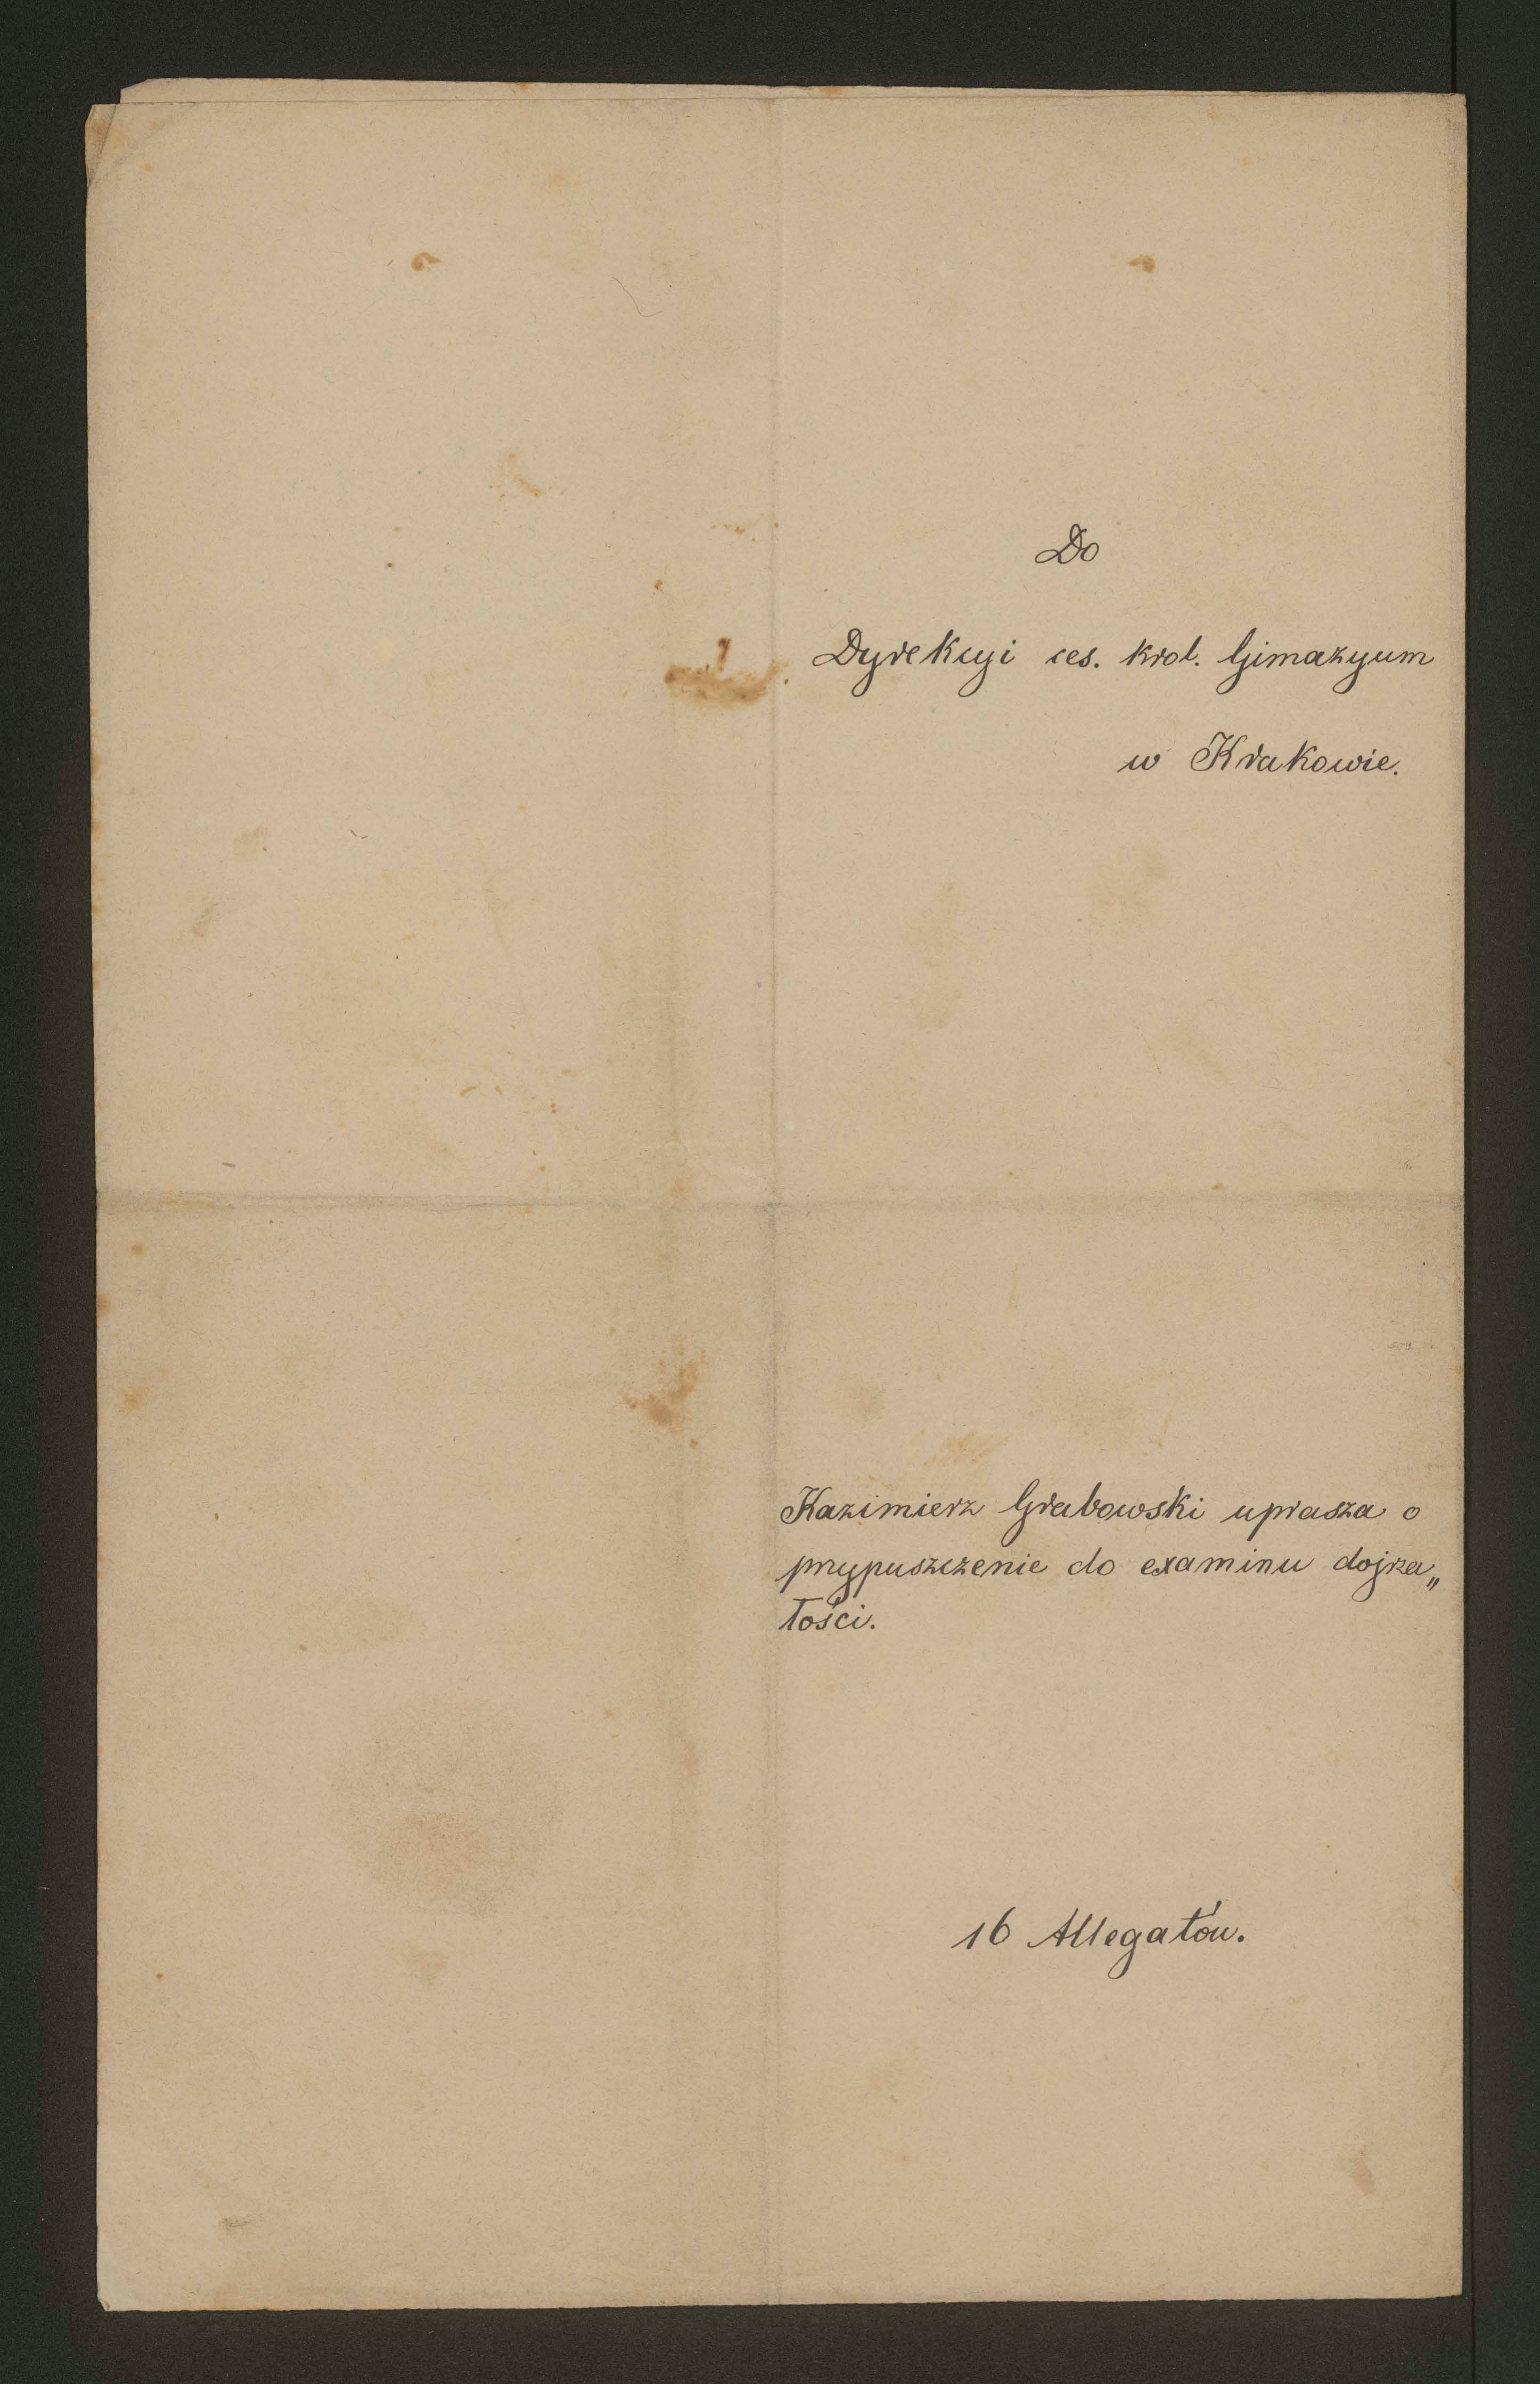 Do
Dyrekcyi ces. krol. Gimazyum
w Krakowie.
Kazimierz Grabowski uprasza o
przypuszczenie do examinu dojrza„
łości.
16 Allegatów.